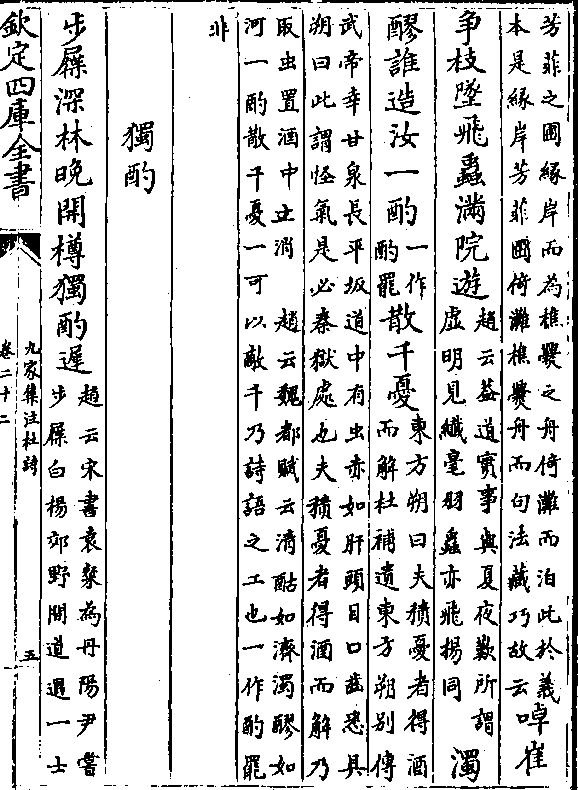 芳菲之圃縁岸而為樵爨之舟倚灘而泊此於義
本是縁岸芳菲圃倚灘樵爨舟而句法藏巧故云
啅崔
争枝墜飛蟲滿院遊
趙云葢道實事與夏夜歎所謂
虚明見纎毫羽蟲亦飛揚同
濁
醪誰造汝一酌
一作
酌罷
散千憂
東方朔曰夫積憂者得酒
而解杜補遺東方朔别傳
武帝幸甘泉長平坂道中有虫赤如肝頭目口齒悉具
朔曰此謂怪氣是必秦獄處也夫積憂者得酒而解乃
取虫置酒中立消 趙云魏都賦云清酤如濟濁醪如
河一酌散千憂一可以敵千乃詩語之工也一作酌罷
非
獨酌
步屧深林晩開樽獨酌遲
趙云宋書袁粲為丹陽尹嘗
步屧白楊郊野間道遇一士
欽定四庫全書
九家集注杜詩
卷二十二
五